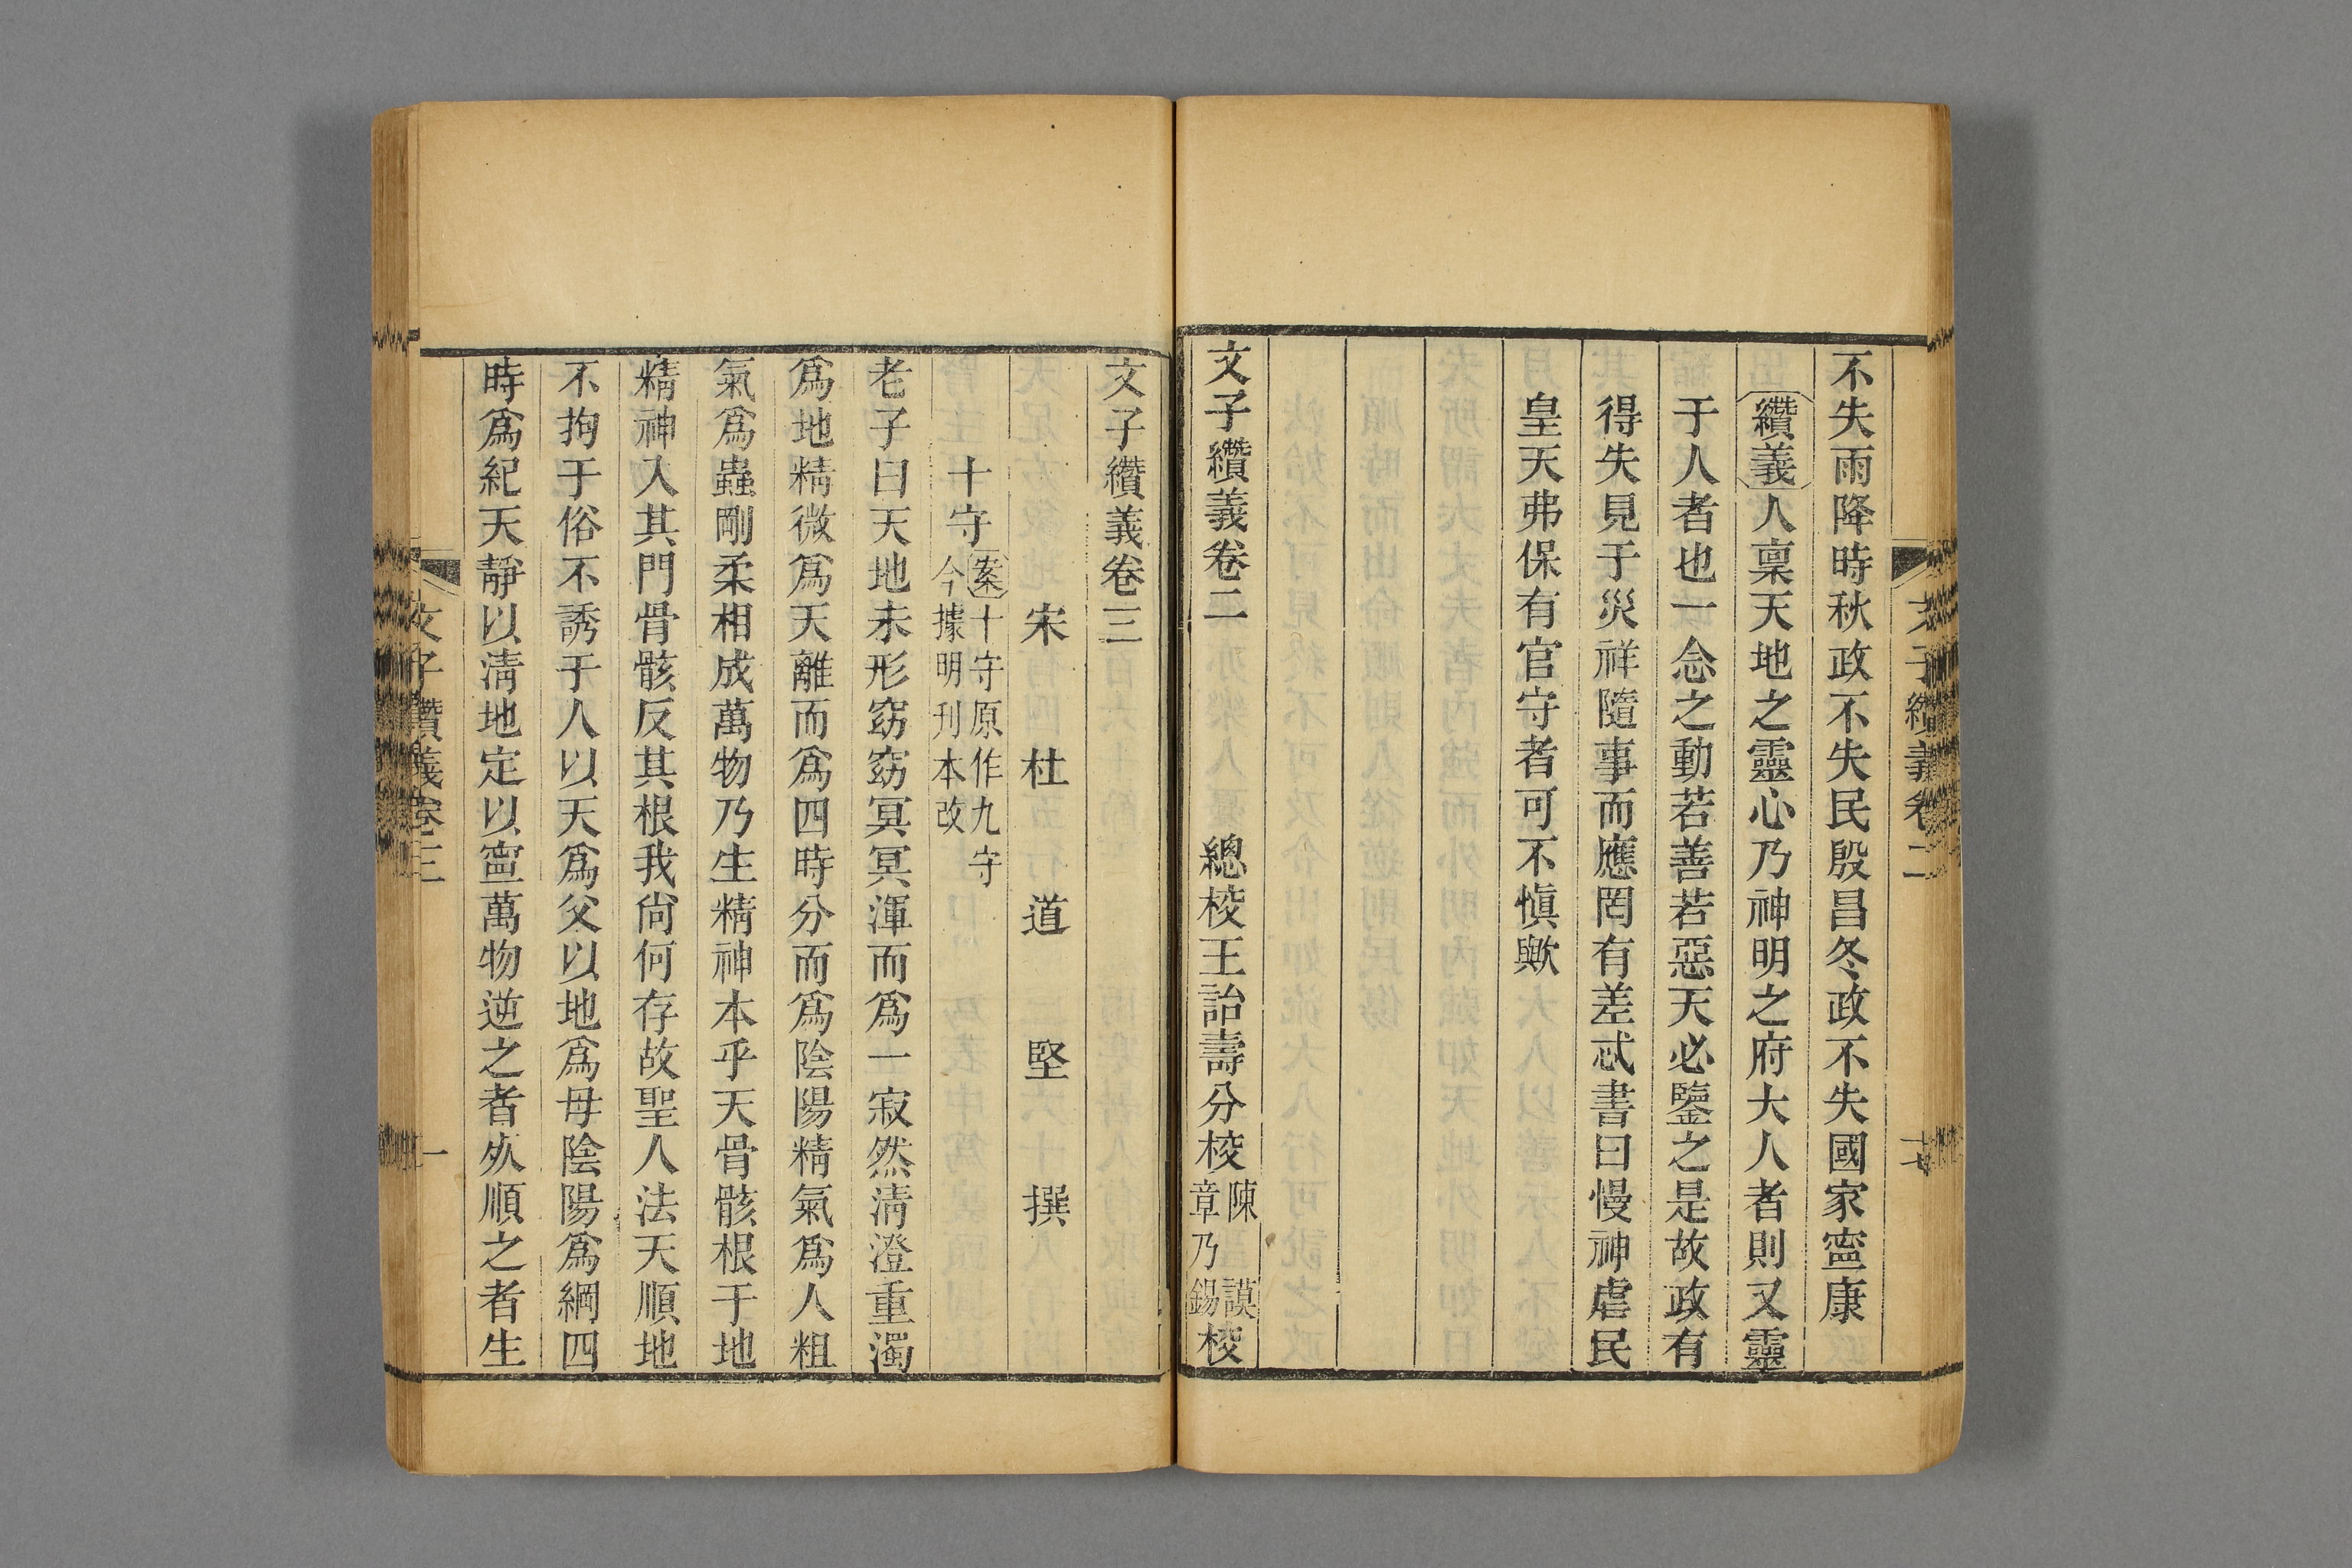 文子纘義卷二
十七
不失雨降時秋政不失民殷昌冬政不失國家寍康
纘義人稟天地之靈心乃神明之府大人者則又靈
于人者也一念之動若善若惡天必鑒之是故政有
得失見于災祥隨事而應罔有差忒書曰慢神虐民
皇天弗保有官守者可不愼歟
文子纘義卷二 總校王詒壽分校陳謨章乃錫校
文子纘義卷三
宋 杜 道 堅 撰
十守案十守原作九守今據明刊本改
老子曰天地未形窈窈冥冥渾而爲一寂然淸澄重濁
爲地精微爲天離而爲四時分而爲陰陽精氣爲人粗
氣爲蟲剛柔相成萬物乃生精神本乎天骨骸根于地
精神入其門骨骸反其根我尙何存故聖人法天順地
不拘于俗不誘于人以天爲父以地爲母陰陽爲綱四
時爲紀天靜以淸地定以寍萬物逆之者死順之者生
文子纘義卷三
一